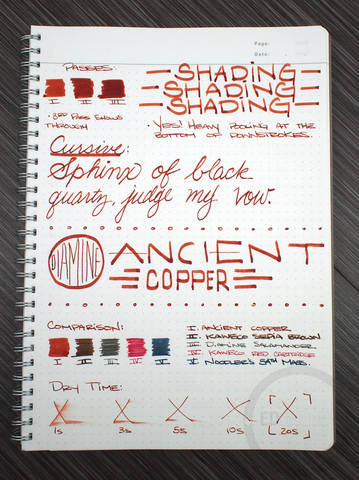 Page:
Date:
Passes:
I II III
• 3rd Pass Shows
Through
SHADING
SHADING
SHADING
• Yes! Heavy pooling at the
bottom of downstrokes.
Cursive:
Sphinx of black
quartz, judge my vow.
DIAMINE
ANCIENT
COPPER
Comparison:
I II III IV V
I. Ancient Copper
II. Kaweco Sepia Brown
III. Diamine Salamander
IV. Kaweco Red Cartridge
V. Noodler's 54th Mass.
Dry Time:
X X X X X
1s 3s 5s 10s 20s